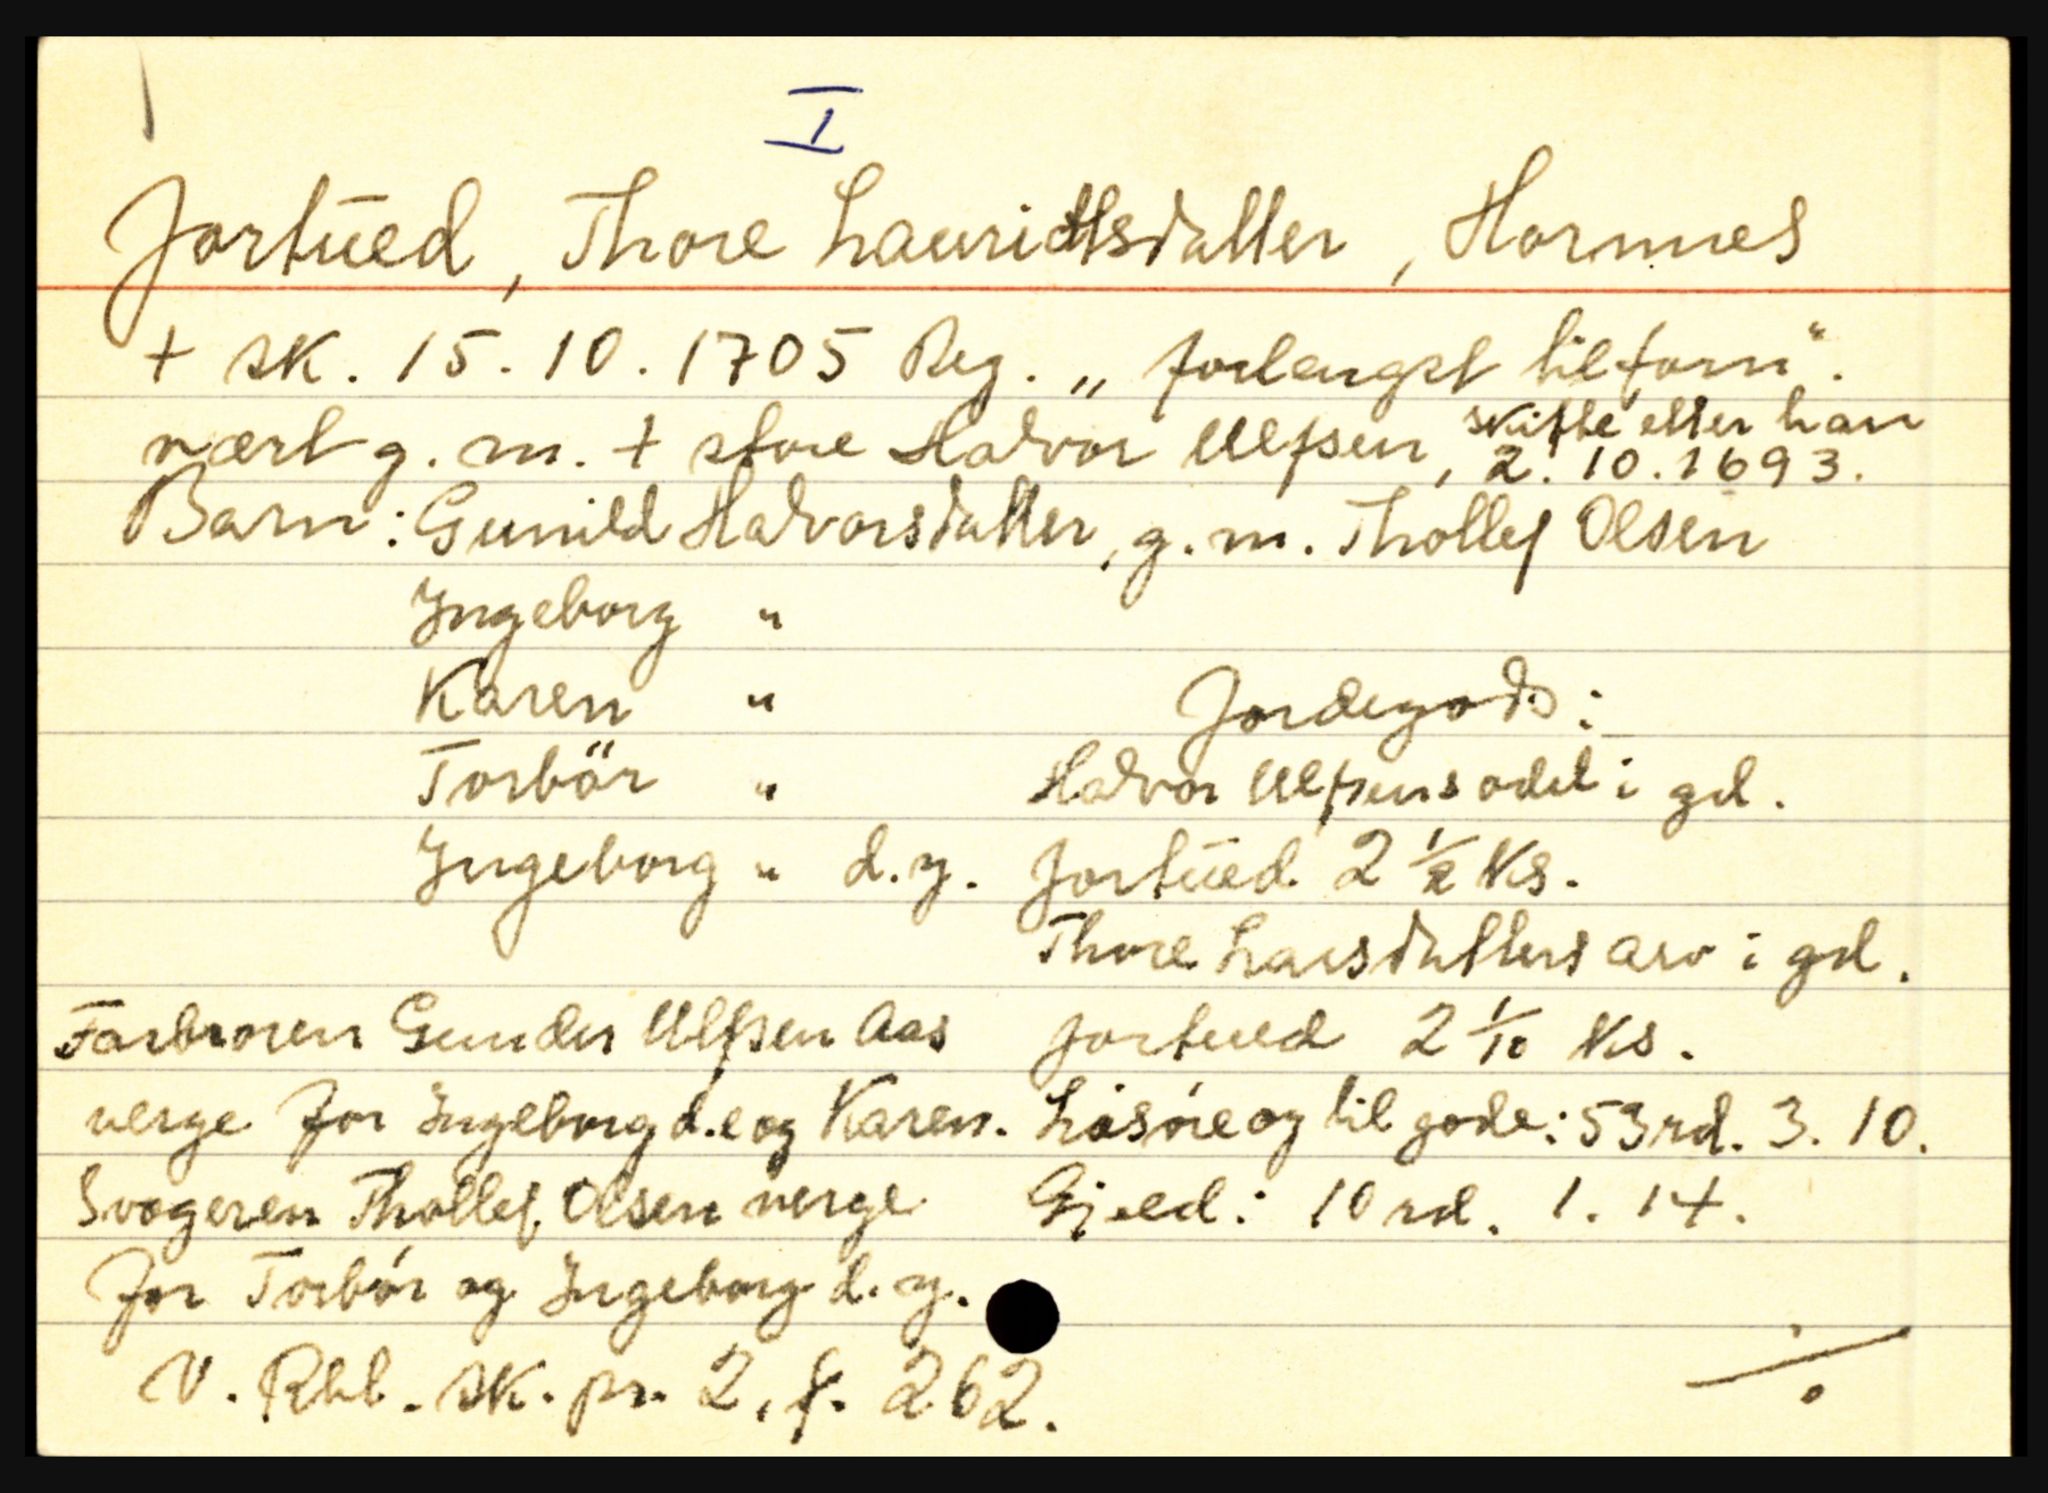 I
Jortüed, Thore Lauridtsdatter, Hornnes
+ sk. 15.10.1705 Reg. „forlengst tilforn“.
vært g. m. + store Halvor Ulfsen, skifte etter han 2.10.1693.
Barn: Gunild Halvorsdatter, g. m. Thollef Olsen
Ingeborg "
Karen "
Jordegods:
Torbör "
Halvor Ulfsens odel i gd.
Ingeborg " d. y.
Jortüed 2 1/2 ks.
Thore Larsdatters arv i gd.
Farbroren Gunder Ulfsen Aas
Jortued 2 1/10 ks.
verge for Ingeborg d.e og Karen.
Løsøre og til gode: 53 rd. 3. 10.
Svogeren Thollef Olsen verge
Gjeld: 10 rd. 1. 14.
for Torbör og Ingeborg d. y.
V. Rbl. sk. pr. 2, f. 262.